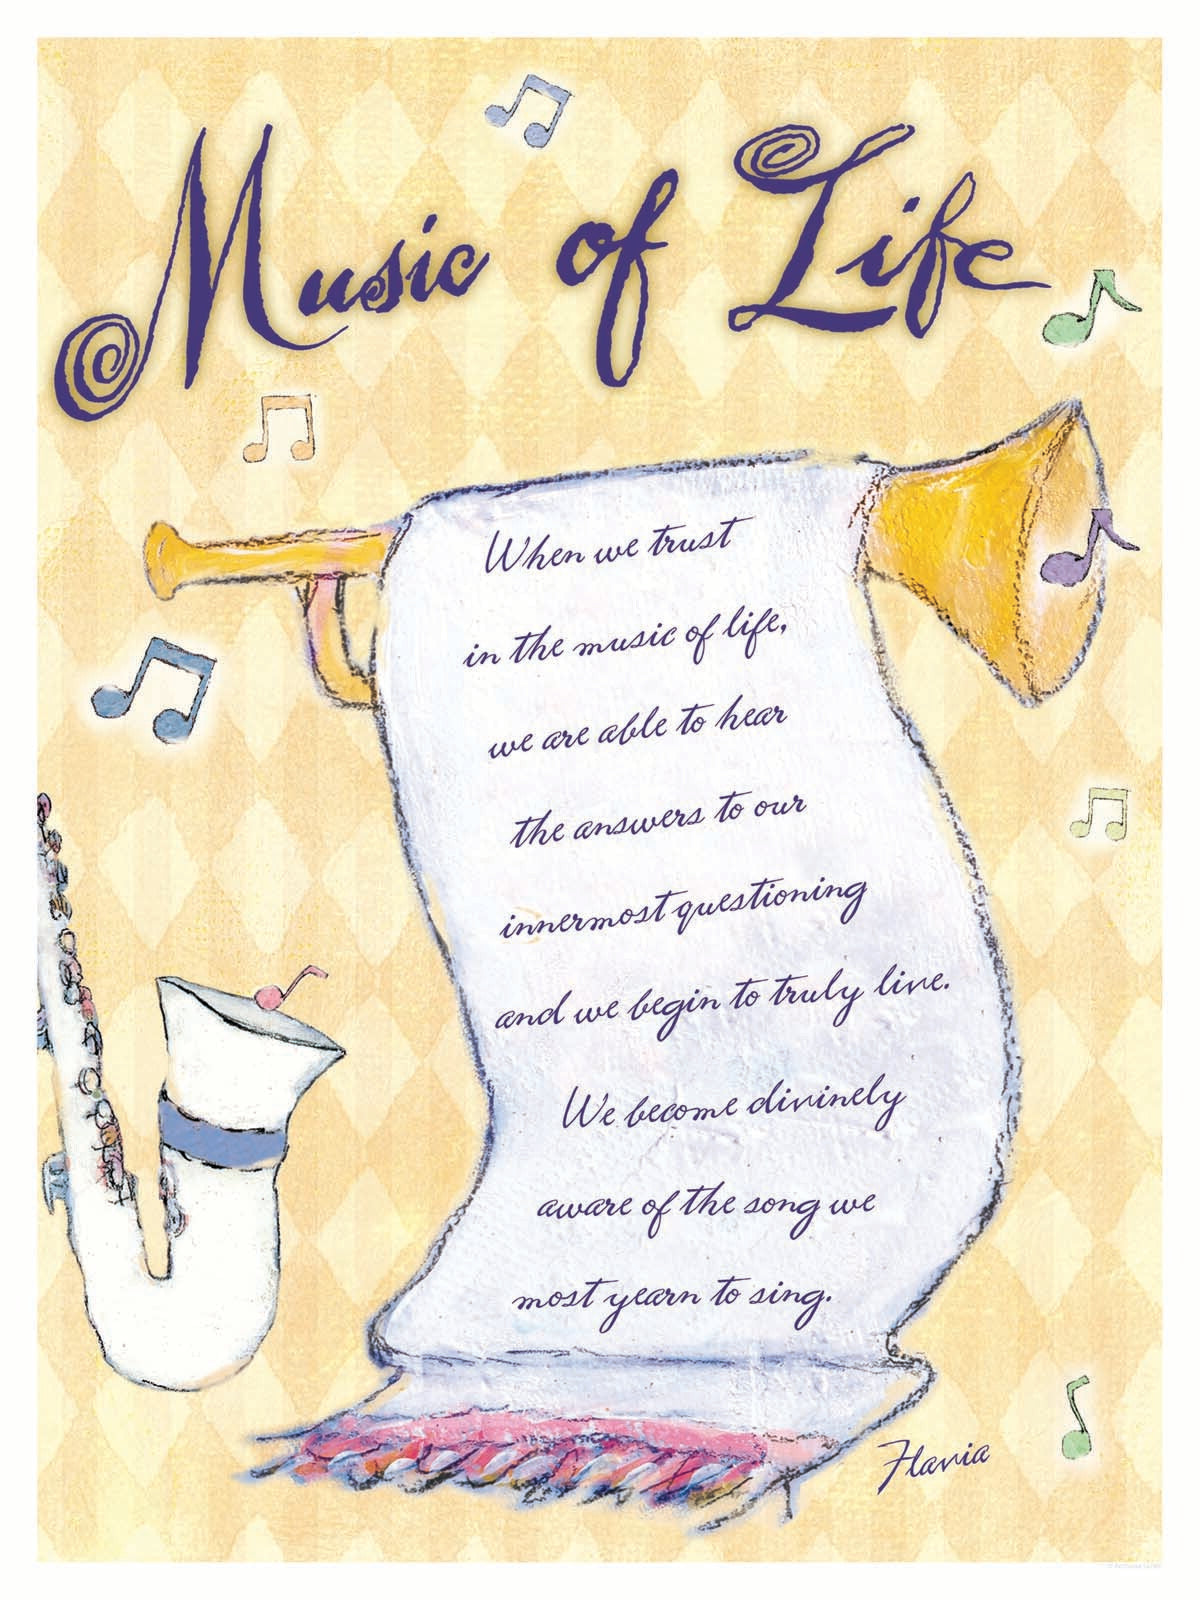 Music of Life
When we trust
in the music of life,
we are able to hear
the answers to our
innermost questioning
and we begin to truly live.
We become divinely
aware of the song we
most yearn to sing.
Flavia